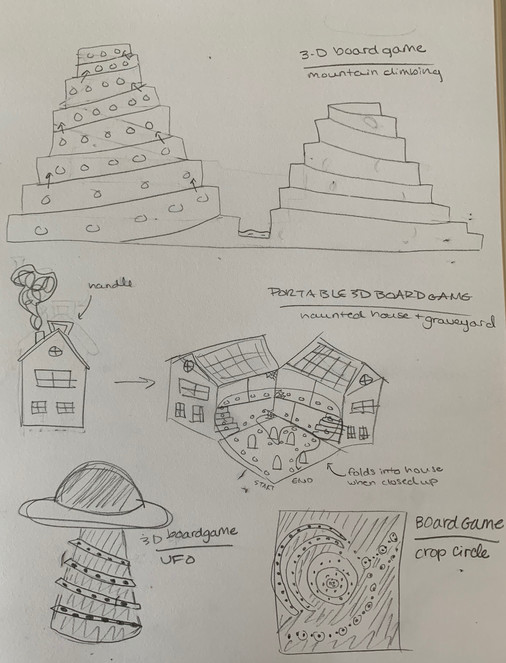 3-D board game
mountain climbing
handle
PORTABLE 3D BOARD GAME
haunted house + graveyard
START END
folds into house
when closed up
3D boardgame
UFO
BOARD GAME
crop circle